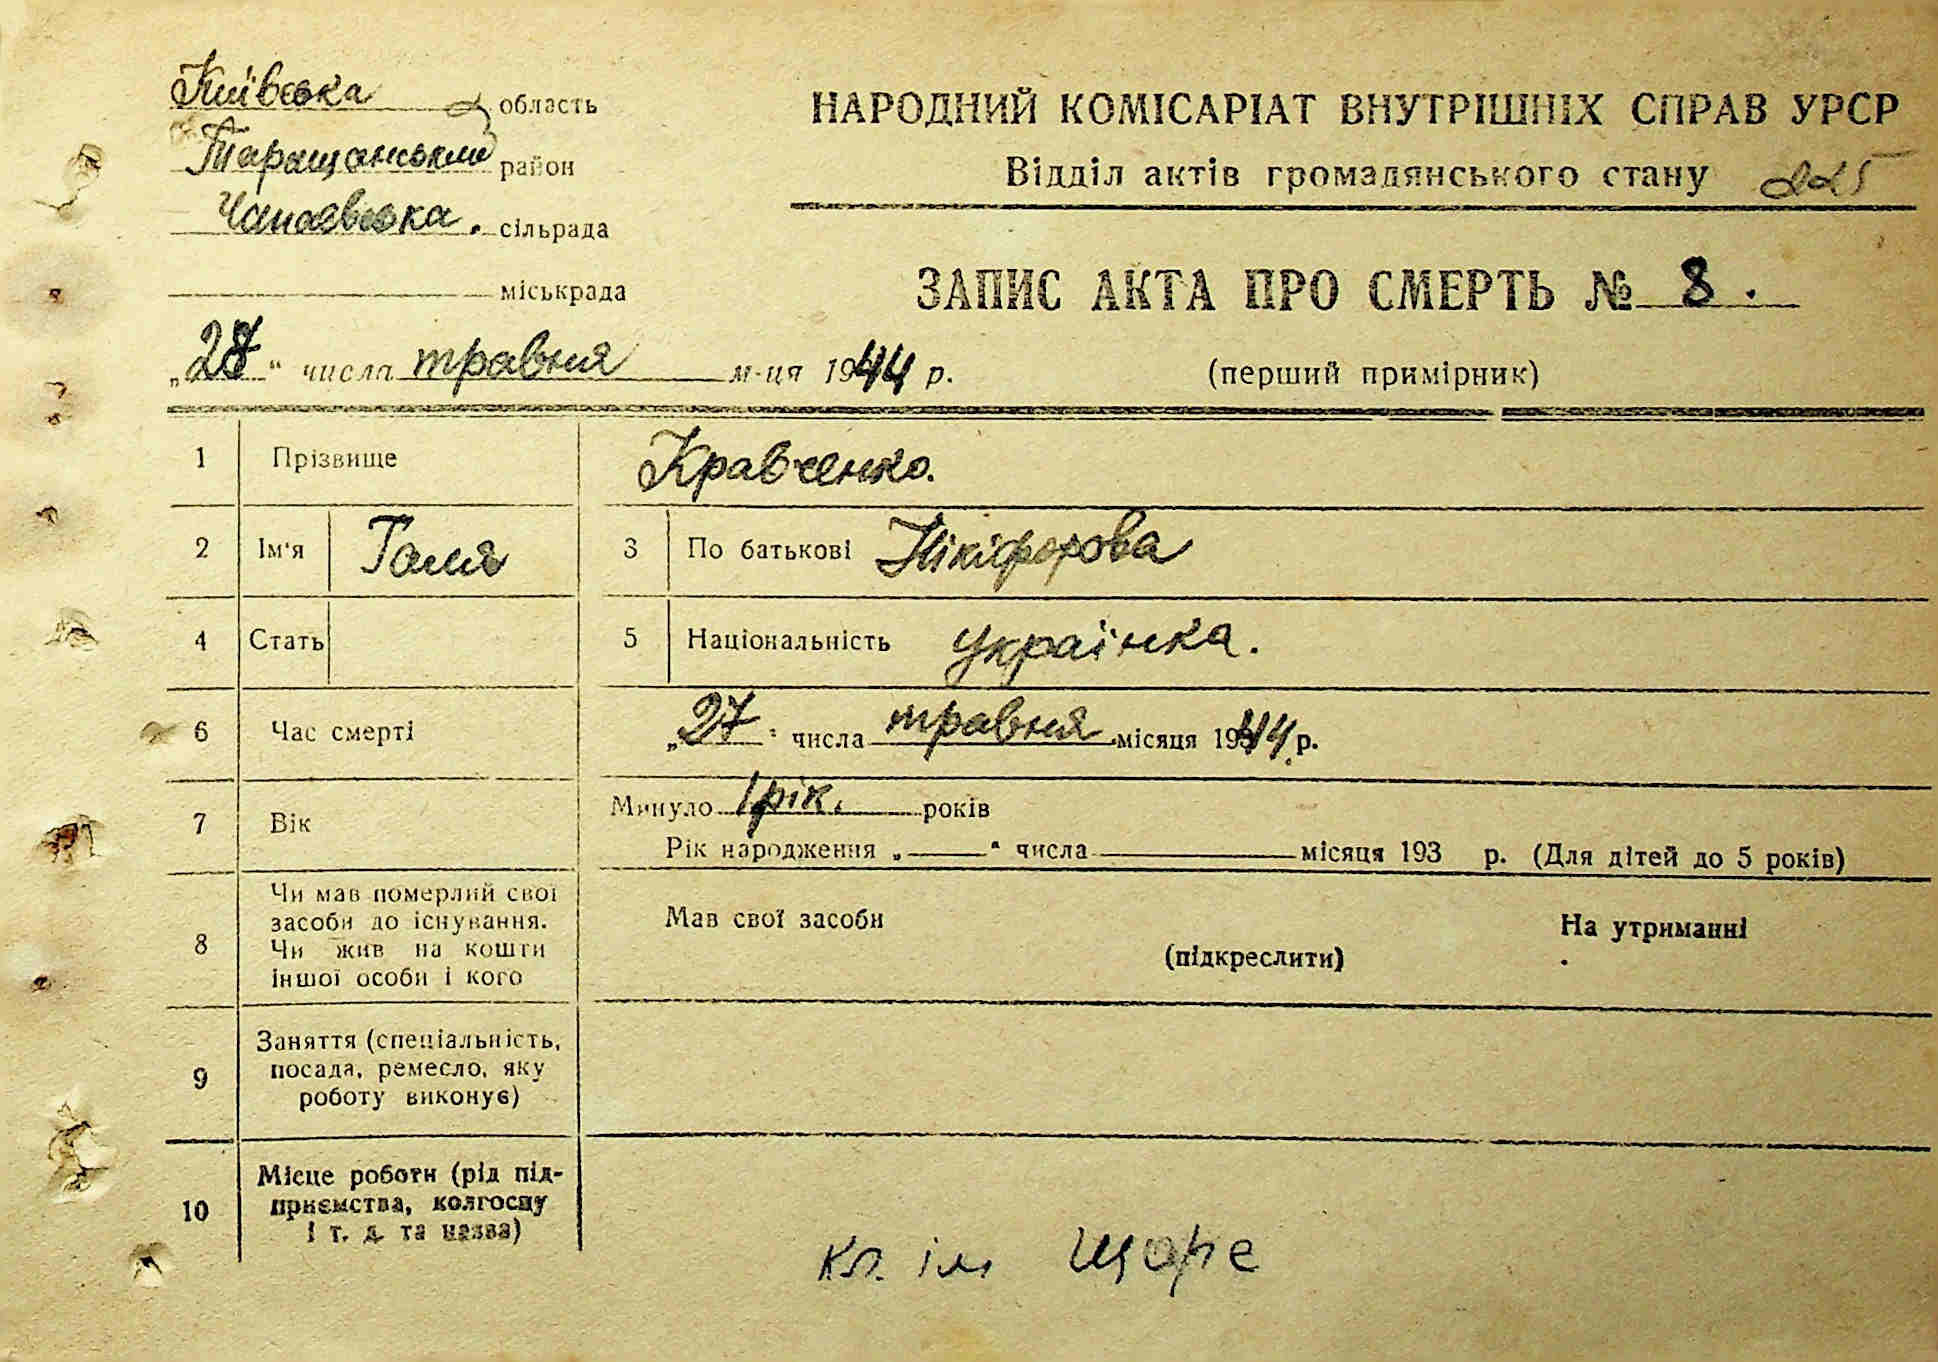 Київська область
Таращанський район
Чапаєвська. сільрада
міськрада
НАРОДНИЙ КОМІСАРІАТ ВНУТРІШНІХ СПРАВ УРСР
Відділ актів громадянського стану 225
ЗАПИС АКТА ПРО СМЕРТЬ № 8.
(перший примірник)
„28“ числа травня м-ця 1944 р.
1 Прізвище Кравченко.
2 Ім'я Галя 3 По батькові Нікіфорова
4 Стать 5 Національність українка.
6 Час смерті „27“ числа травня місяця 1944 р.
7 Вік Минуло 1 рік. років
Рік народження „ “ числа місяця 193 р. (Для дітей до 5 років)
8 Чи мав померлий свої
засоби до існування.
Чи жив на кошти
іншої особи і кого
Мав свої засоби На утриманні
(підкреслити)
9 Заняття (спеціальність,
посада, ремесло, яку
роботу виконує)
10 Місце роботи (рід під-
приємства, колгоспу
і т. д. та назва)
кл. ім